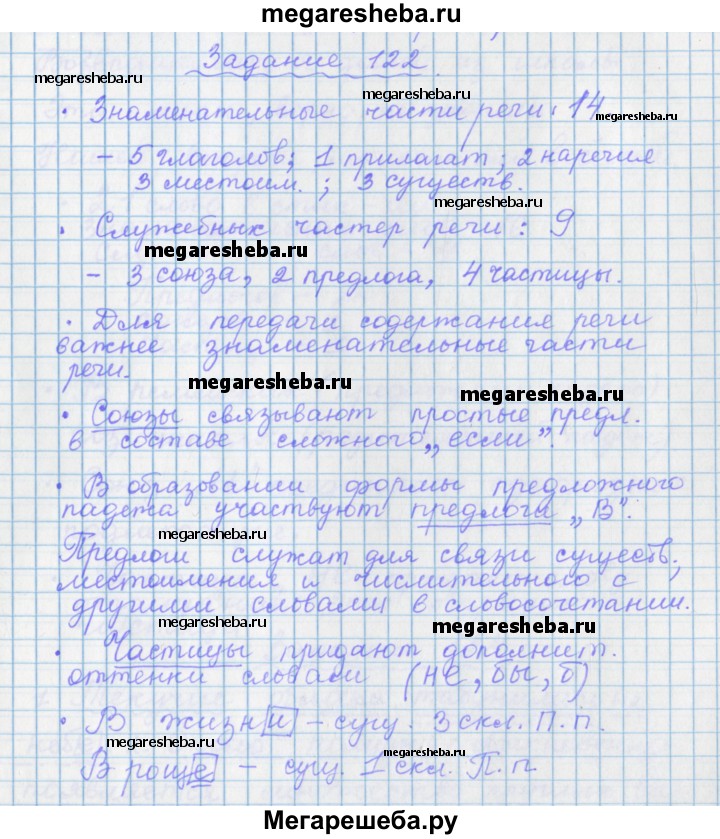 megaresheba.ru
Задание 122
megaresheba.ru
megaresheba.ru
• Знаменательные части речи: 14
megaresheba.ru
– 5 глаголов; 1 прилагат; 2 наречия
3 местоим. ; 3 существ.
megaresheba.ru
• Служебных частер речи : 9
megaresheba.ru
– 3 союза, 2 предлога, 4 частицы.
• Для передачи содержания речи
важнее знаменательные части
речи.
megaresheba.ru
megaresheba.ru
• Союзы связывают простые предл.
в составе сложного „если".
• В образовании формы предложного
падежа участвуют предлоги „В".
megaresheba.ru
Предлоги служат для связи существ.,
местоимения и числительного с
другими словами в словосочетании.
megaresheba.ru
megaresheba.ru
• Частицы придают дополнит.
оттенки словам (не, бы, б)
• В жизни – сущ. 3 скл. П. п.
megaresheba.ru
megaresheba.ru
В роще – сущ. 1 скл. П. п
Мегарешеба.ру